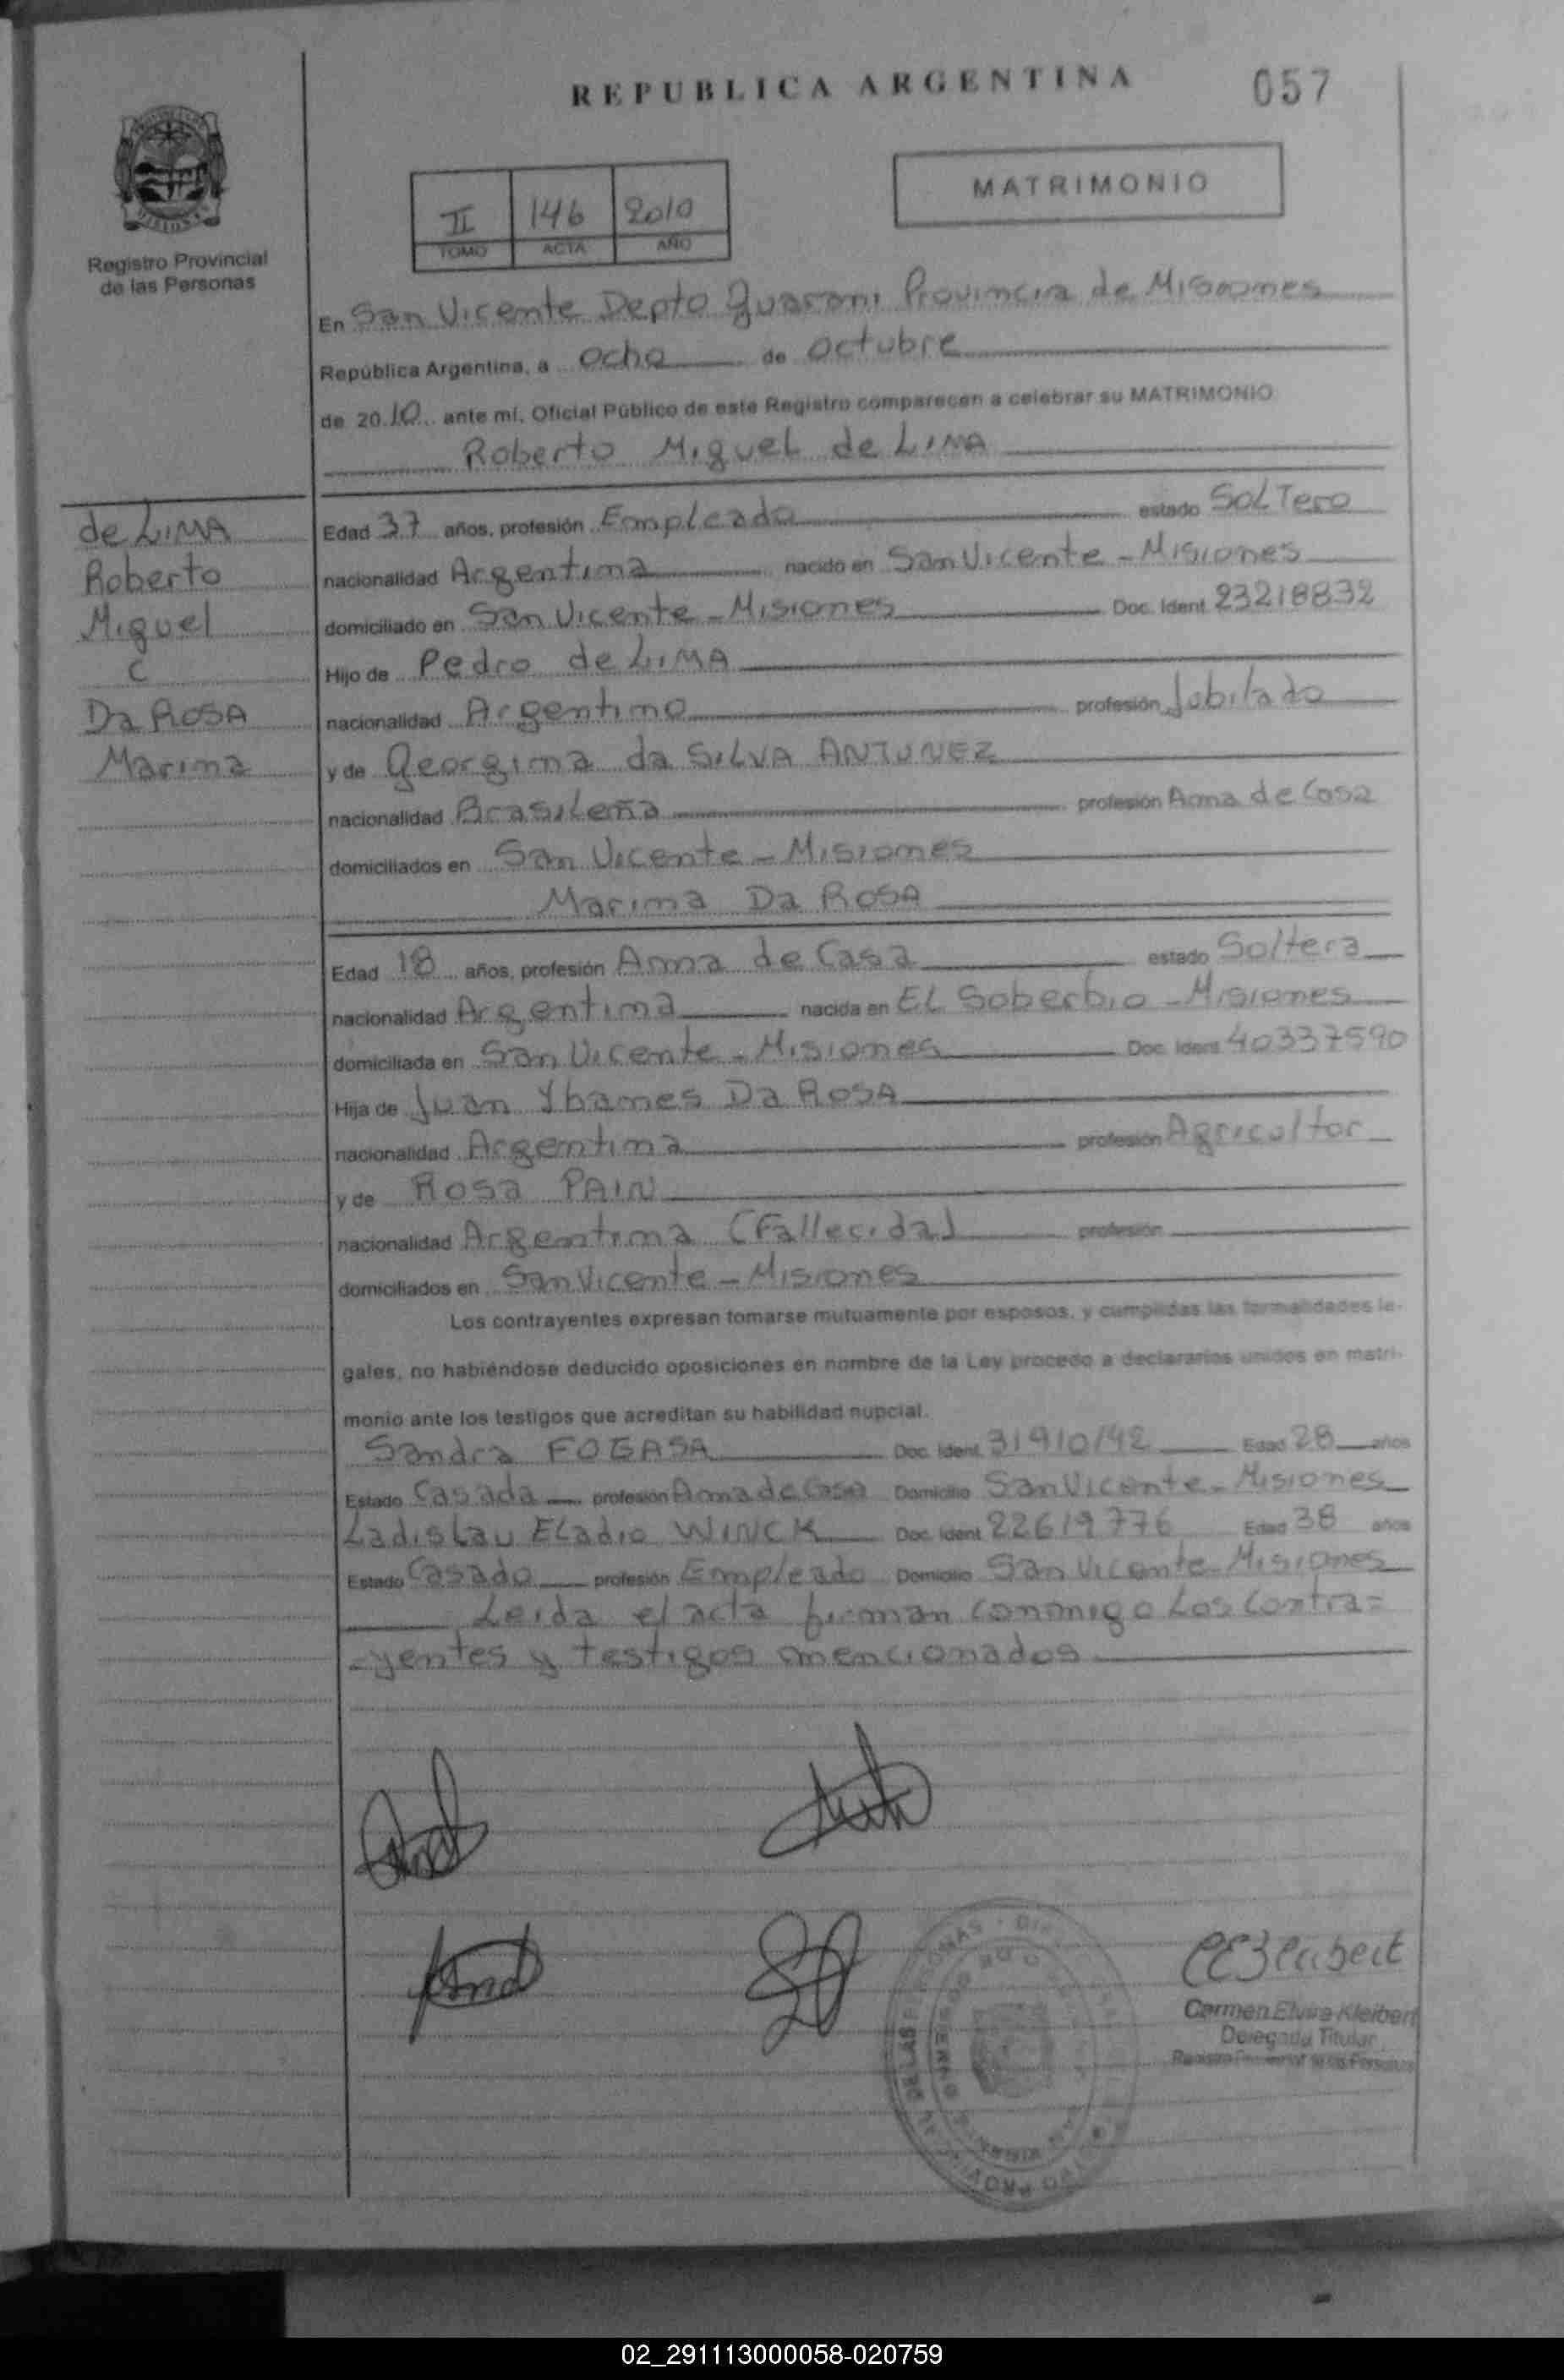 REPUBLICA ARGENTINA
057
MATRIMONIO
II 146 2010
TOMO ACTA AÑO
Registro Provincial
de las Personas
En San Vicente Depto Guarani Provincia de Misiones
República Argentina, a ocho de octubre
de 2010 ante mí, Oficial Público de este Registro comparecen a celebrar su MATRIMONIO
Roberto Miguel de LIMA
de LIMA
Roberto
Miguel
C
Da ROSA
Marina
Edad 37 años, profesión Empleado estado SolTero
nacionalidad Argentina nacido en San Vicente - Misiones
domiciliado en San Vicente - Misiones Doc. Ident. 23218832
Hijo de Pedro de LIMA
nacionalidad Argentino profesión Jubilado
y de Georgina da SILVA ANTUNEZ
nacionalidad Brasileña profesión Ama de Casa
domiciliados en San Vicente - Misiones
Marina Da ROSA
Edad 18 años, profesión Ama de Casa estado Soltera
nacionalidad Argentina nacida en EL Soberbio - Misiones
domiciliada en San Vicente - Misiones Doc. Ident. 40337590
Hija de Juan Ybanes Da ROSA
nacionalidad Argentina profesión Agricultor
y de Rosa PAIN
nacionalidad Argentina (Fallecida) profesión
domiciliados en San Vicente - Misiones
Los contrayentes expresan tomarse mutuamente por esposos, y cumplidas las formalidades le-
gales, no habiéndose deducido oposiciones en nombre de la Ley procedo a declararlos unidos en matri-
monio ante los testigos que acreditan su habilidad nupcial.
Sandra FOGASA Doc. Ident. 31910142 Edad 28 años
Estado Casada profesión Ama de Casa Domicilio San Vicente - Misiones
Ladislau ELadio WINCK Doc. Ident. 22619776 Edad 38 años
Estado Casado profesión Empleado Domicilio San Vicente - Misiones
Leida el acta firman conmigo Los Contra=
-yentes y testigos mencionados
Carmen Elvira Kleibert
Delegada Titular
02_291113000058-020759